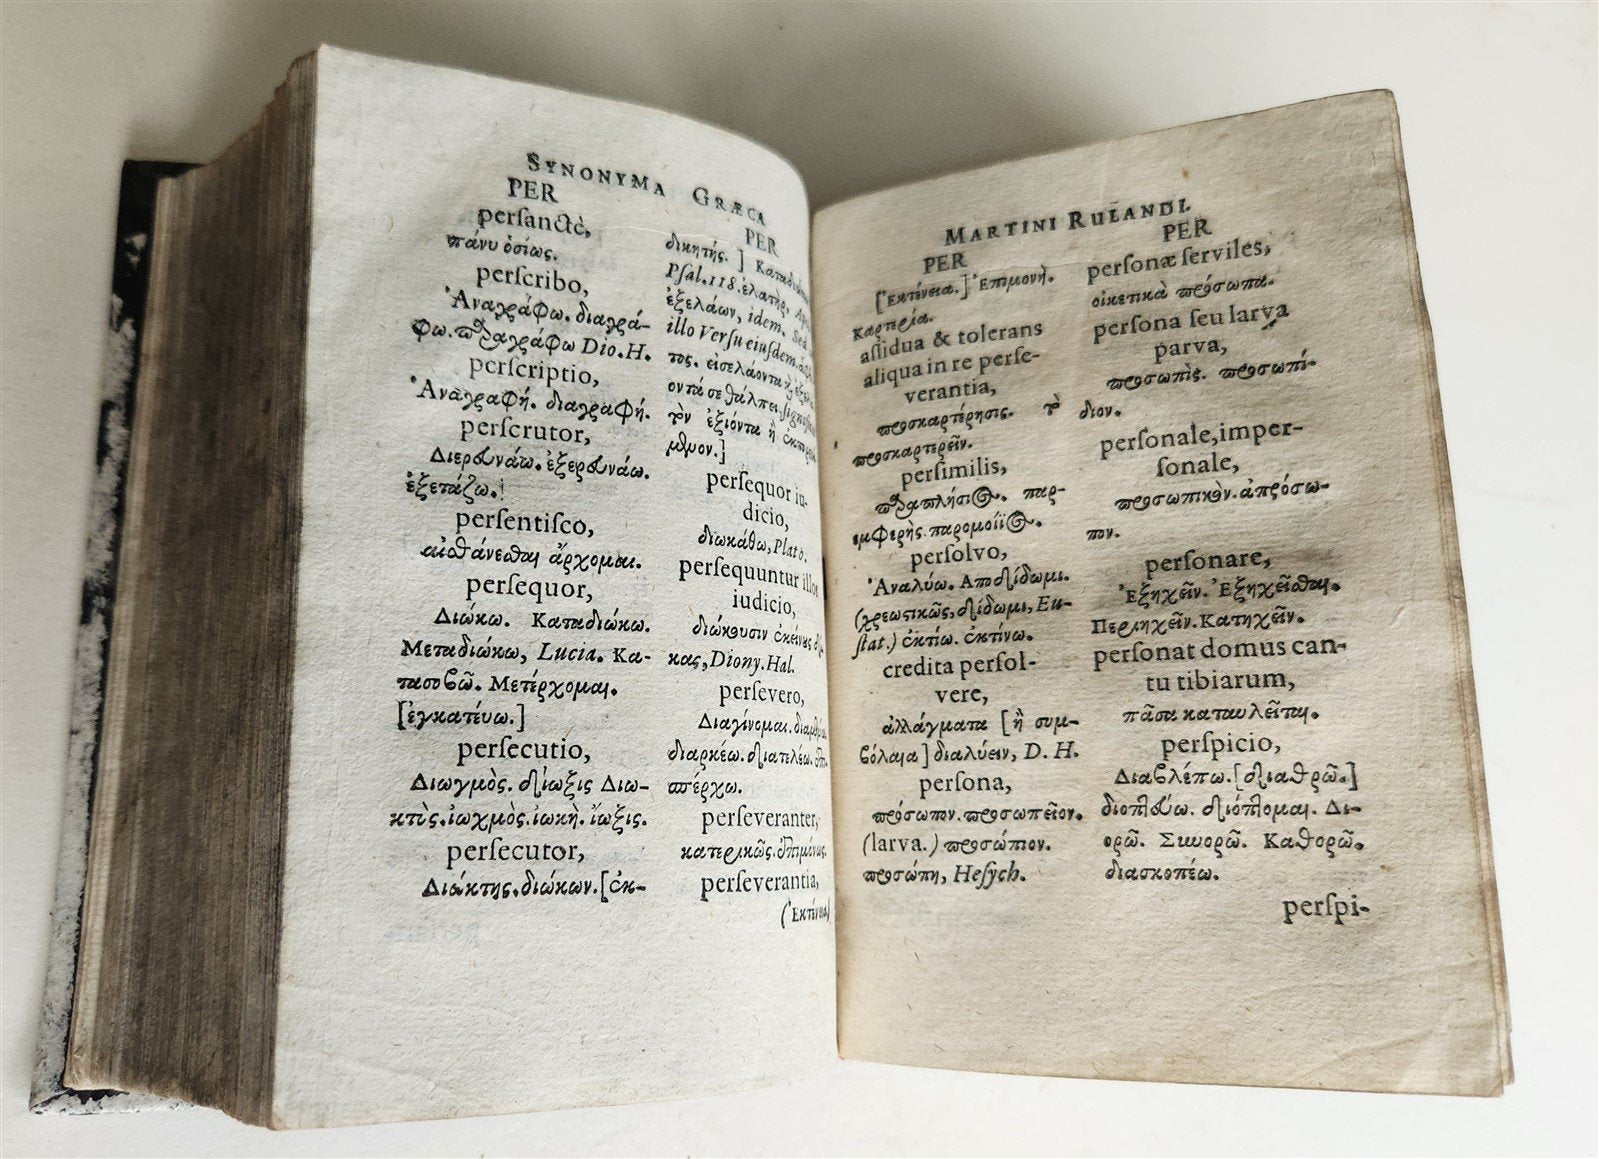 SYNONYMA GRÆCA
PER
perſanctè,
πάνυ ὁσίως.
perſcribo,
Ἀναγράφω. διαγρά-
φω. παραγράφω Dio. H.
perſcriptio,
Ἀναγραφή. διαγραφή.
perſcrutor,
Διερευνάω. ἐξερευνάω.
ἐξετάζω.
perſentiſco,
αἰσθάνεσθαι ἄρχομαι.
perſequor,
Διώκω. Καταδιώκω.
Μεταδιώκω, Lucia. Κα-
τασοβῶ. Μετέρχομαι.
[ἐγκατεύω.]
perſecutio,
Διωγμὸς. δίωξις Διω-
κτὺς. ἰωχμὸς. ἰωκὴ. ἴωξις.
perſecutor,
Διώκτης. διώκων. [ἐκ-
PER
δικητής.]
Pſal. 118. ἐλατὴρ,
ἐξελάων, idem. Sed
illo Verſu eiuſdem.
τος. εἰσελάοντα
οντά σε θάλπει.
τὸν ἐξιόντα ἢ
μενον.]
perſequor iu-
dicio,
διωκάθω, Plato.
perſequuntur illos
iudicio,
διώκουσιν ἐκείνους δί-
κας, Diony. Hal.
perſevero,
Διαγίνομαι.
διαρκέω. διατελέω.
σπέρχω.
perſeveranter,
κατερικῶς. ἐπιμόνως.
perſeverantia,
(Ἐκτένεια)
MARTINI RULANDI.
PER
[Ἐκτένεια.] Ἐπιμονὴ.
Καρτερία.
aſſidua & tolerans
aliqua in re perſe-
verantia,
προσκαρτέρησις. τὸ
προσκαρτερεῖν.
perſimilis,
παραπλήσιος. παρ-
εμφερὴς. παρομοίϊος.
perſolvo,
Ἀναλύω. Αποδίδωμι.
(χρεωστικῶς, δίδωμι, Eu-
ſtat.) ἐκτίω. ἐκτίνω.
credita perſol-
vere,
ἀλλάγματα [ἢ συμ-
βόλαια] διαλύειν, D. H.
perſona,
πρόσωπον. προσωπεῖον.
(larva.) προσώπιον.
προσώπη, Heſych.
PER
perſonæ ſerviles,
οἰκετικὰ πρόσωπα.
perſona ſeu larva
parva,
προσωπὶς. προσωπί-
διον.
perſonale, imper-
ſonale,
προσωπικὸν. ἀπρόσω-
πον.
perſonare,
Ἐξηχεῖν. Ἐξηχεῖσθαι.
Περιηχεῖν. Κατηχεῖν.
perſonat domus can-
tu tibiarum,
πᾶσα καταυλεῖται.
perſpicio,
Διαβλέπω. [διαθρῶ.]
διοπτεύω. διόπτομαι. Δι-
ορῶ. Συνορῶ. Καθορῶ.
διασκοπέω.
perſpi-